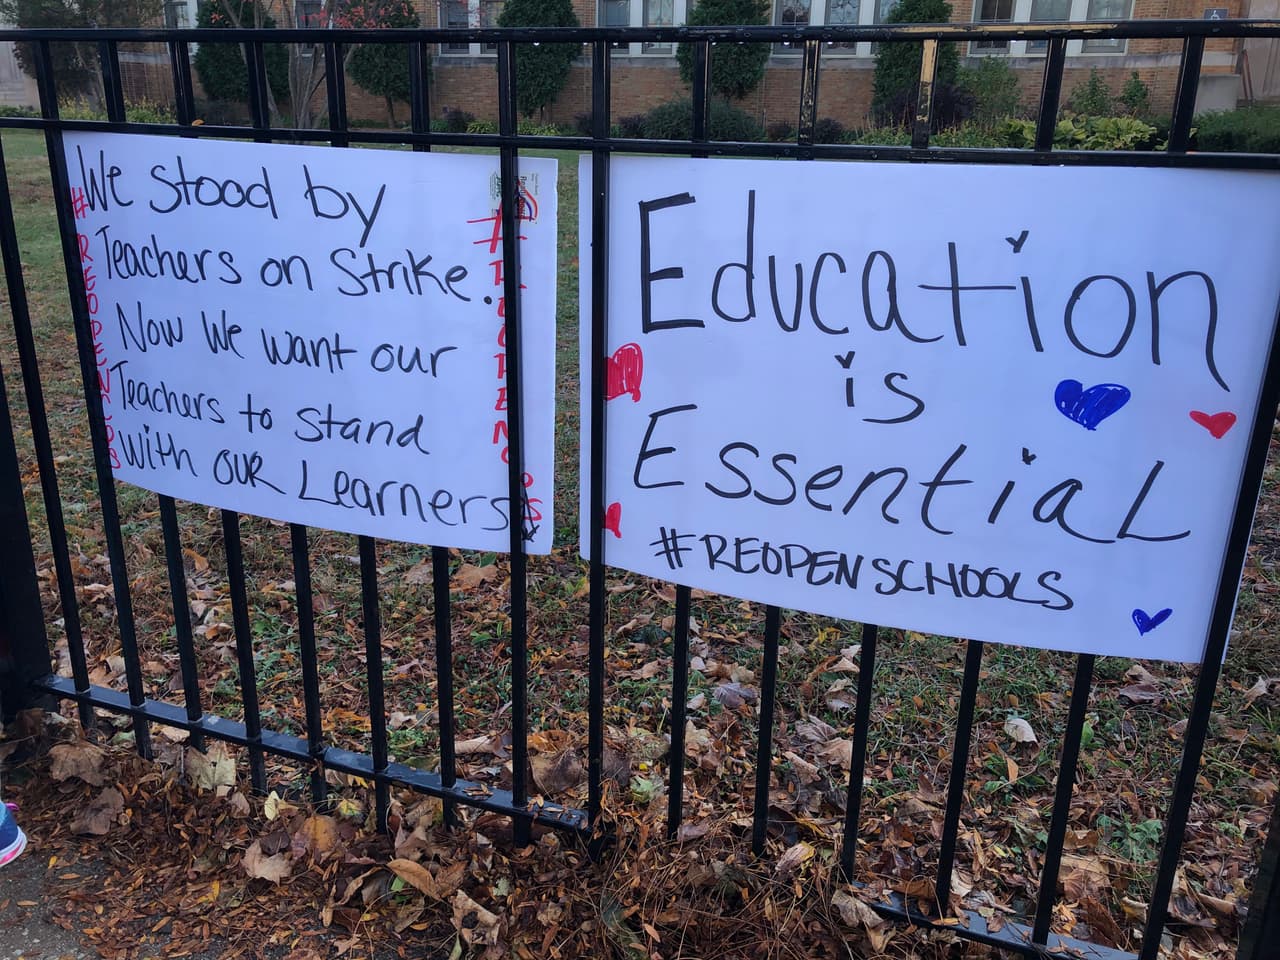 We stood by
Teachers on Strike.
Now We want our
Teachers to stand
with our Learners
Education
is
Essential
#REOPENSCHOOLS